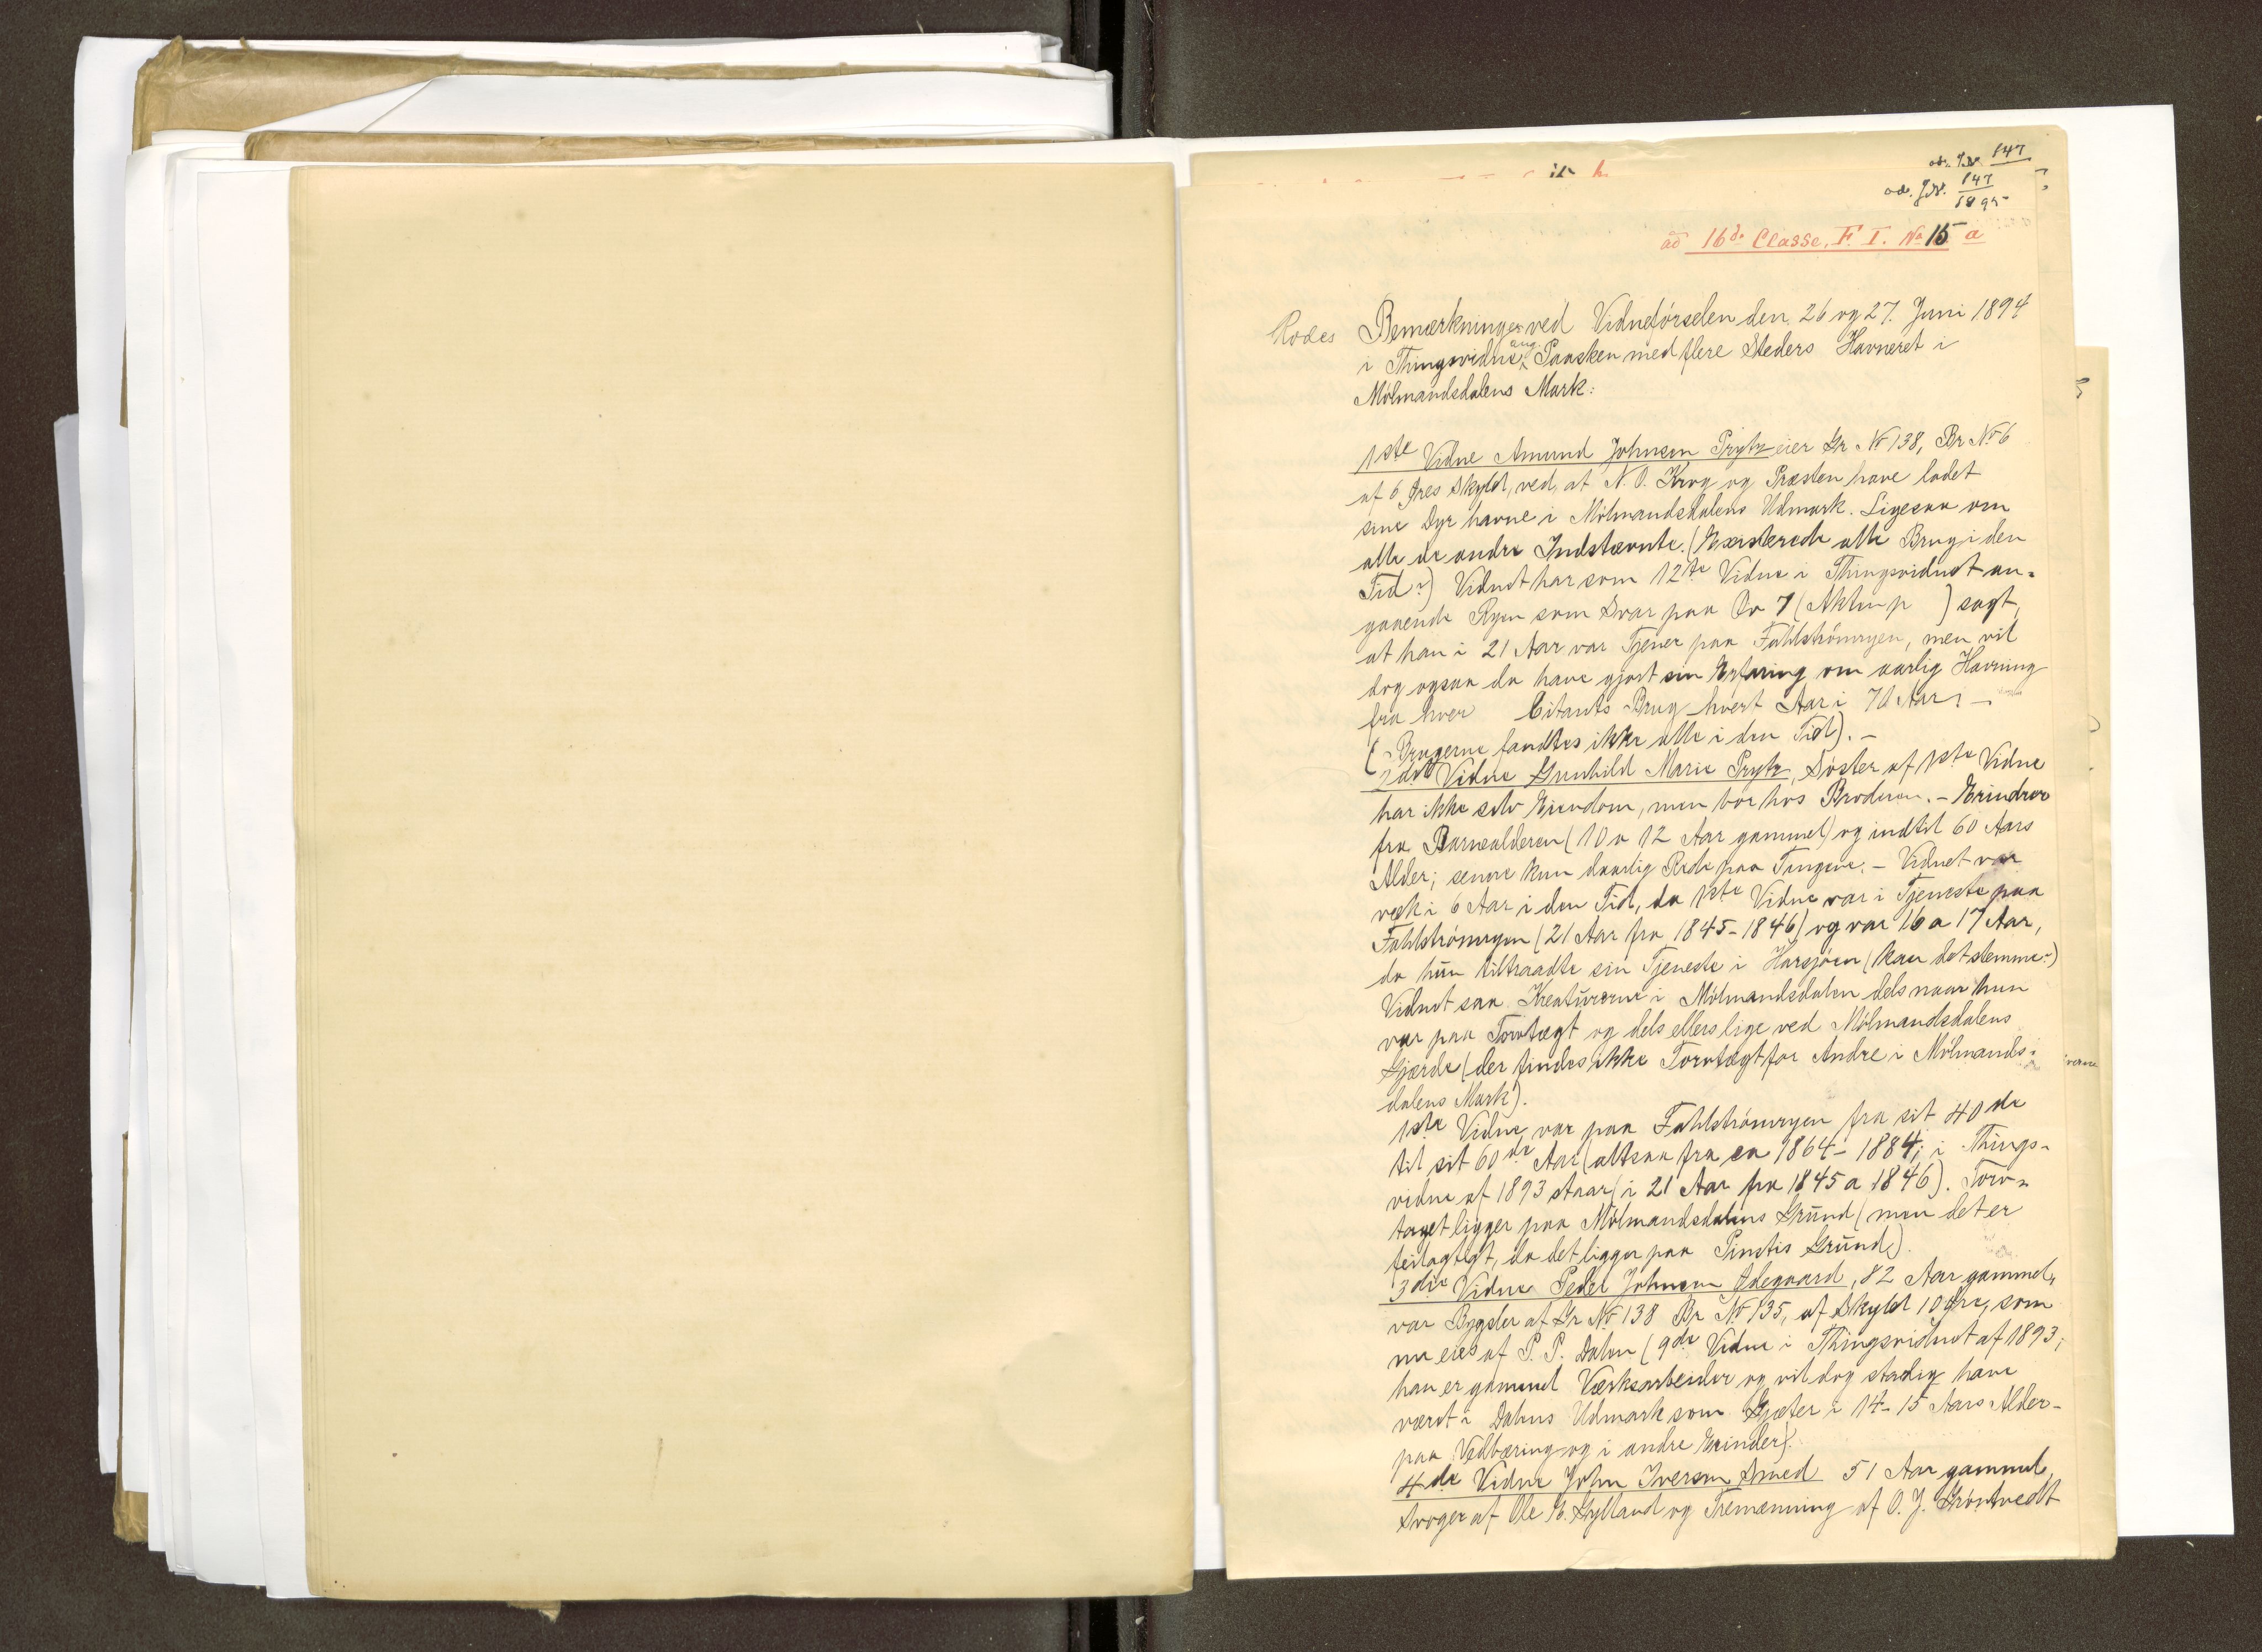 ad. J.N. 147
ad. J.N. 147
1895
ad 16de Classe, F. I. No 15 a
Rodes Bemærkninger ved Vidneførselen den 26 og 27. Juni 1894
i Thingsvidne ang. Paasken med flere Steders Havneret i
Mølmandsdalens Mark:
1ste Vidne Amund Johnsen Prytz eier Gr. No 138, Br No 6
af 6 Øres Skyld, ved, at N. O. Krog og Præsten have ladet
sine Dyr havne i Mølmandsdalens Udmark. Ligesaa om
alle de andre Indstævnte. (Existerede alle Brug i den
Tid?) Vidnet har som 12te Vidne i Thingsvidnet an-
gaaende Ryen som Svar paa Qv 7 (Akten p ) sagt,
at han i 21 Aar var Tjener paa Fahlstrømryen, men vil
dog ogsaa da have gjort sin Erfaring om aarlig Havning
fra hver Citants Brug hvert Aar i 70 Aar? -
(Brugerne fandtes ikke alle i den Tid). -
2det Vidne Gunhild Marie Prytz, Søster af 1ste Vidne
har ikke selv Eiendom, men bor hos Broderen. - Erindrer
fra Barnealderen (10 a 12 Aar gammel) og indtil 60 Aars
Alder; senere kun daarlig Rede paa Tingene. - Vidnet var
væk i 6 Aar i den Tid, da 1ste Vidne var i Tjeneste paa
Fahlstrømryen (21 Aar fra 1845-1846) og var 16 a 17 Aar,
da hun tiltraadte sin Tjeneste i Harsjøen (kan det stemme?)
Vidnet saa Kreaturerne i Mølmandsdalen dels naar hun
var paa Torvtægt og dels ellers lige ved Mølmandsdalens
Gjærde (der findes ikke Torvtægt for Andre i Mølmands-
dalens Mark).
1ste Vidne var paa Fahlstrømryen fra sit 40de
til sit 60de Aar (altsaa fra ca 1864-1884; i Things-
vidne af 1893 staar i 21 Aar fra 1845 a 1846). Torv-
taget ligger paa Mølmandsdalens Grund (men det er
feilagtigt, da det ligger paa Pinstis Grund).
3die Vidne Peder Johnsen Ødegaard, 82 Aar gammel,
var Bygsler af Gr No 138 Br No 135, af Skyld 10 Øre, som
nu eies af P. P. Dalen (9de Vidne i Thingsvidnet af 1893;
han er gammel Værksarbeider og vil dog stadig have
været i Dalens Udmark som Gjæter i 14-15 Aars Alder -
paa Vedbæring og i andre Erinder).
4de Vidne John Iversen Smed 51 Aar gammel,
Svoger af Ole E. Gylland og Tremænning af O. J. Grøntvedt